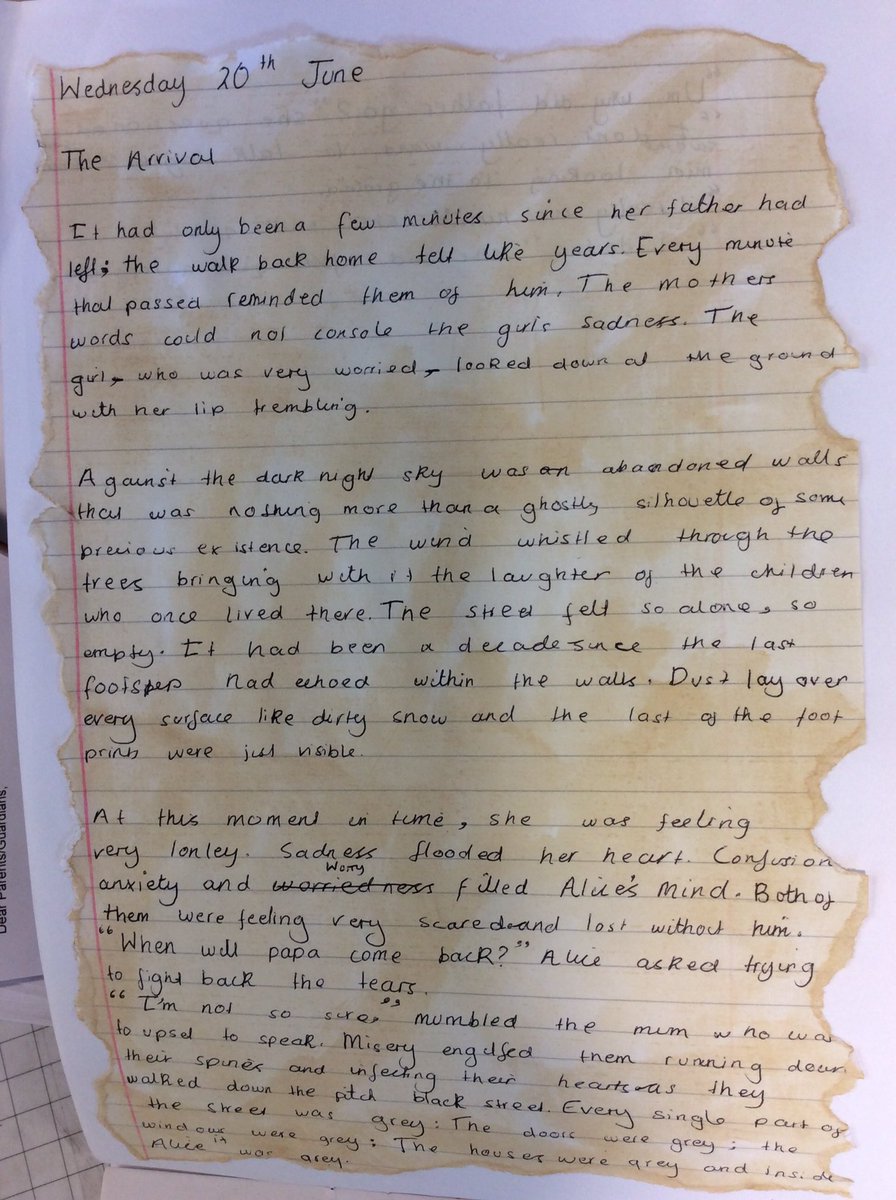 Wednesday 20th June
The Arrival
It had only been a few minutes since her father had
left; the walk back home felt like years. Every minute
that passed reminded them of him. The mothers
words could not console the girls sadness. The
girl, who was very worried, looked down at the ground
with her lip trembling.
Against the dark night sky was an abandoned walls
that was nothing more than a ghostly silhouette of some
precious existence. The wind whistled through the
trees bringing with it the laughter of the children
who once lived there. The street felt so alone, so
empty. It had been a decade since the last
footstep had echoed within the walls. Dust lay over
every surface like dirty snow and the last of the foot
prints were just visible.
At this moment in time, she was feeling
very lonley. Sadness flooded her heart. Confusion
anxiety and worriedness Worry filled Alice's mind. Both of
them were feeling very scared and lost without him.
"When will papa come back?" Alice asked trying
to fight back the tears.
"I'm not so sure," mumbled the mum who was
to upset to speak. Misery engulfed them running down
their spines and infecting their hearts as they
walked down the pitch black street. Every single part of
the street was grey: The doors were grey; the
windows were grey; The houses were grey and inside
Alice it was grey.
Dear Parents/Guardians,